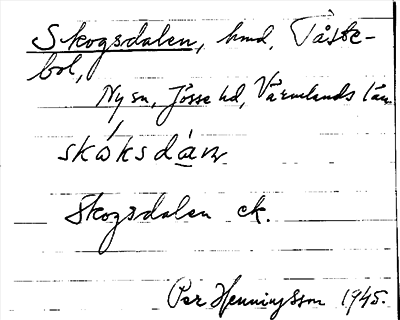 Skogsdalen, hmd, Tåste-
bol,
Ny sn, Jösse hd, Värmlands län
skóksdán
Skogsdalen ek.
Per Henningsson 1945.